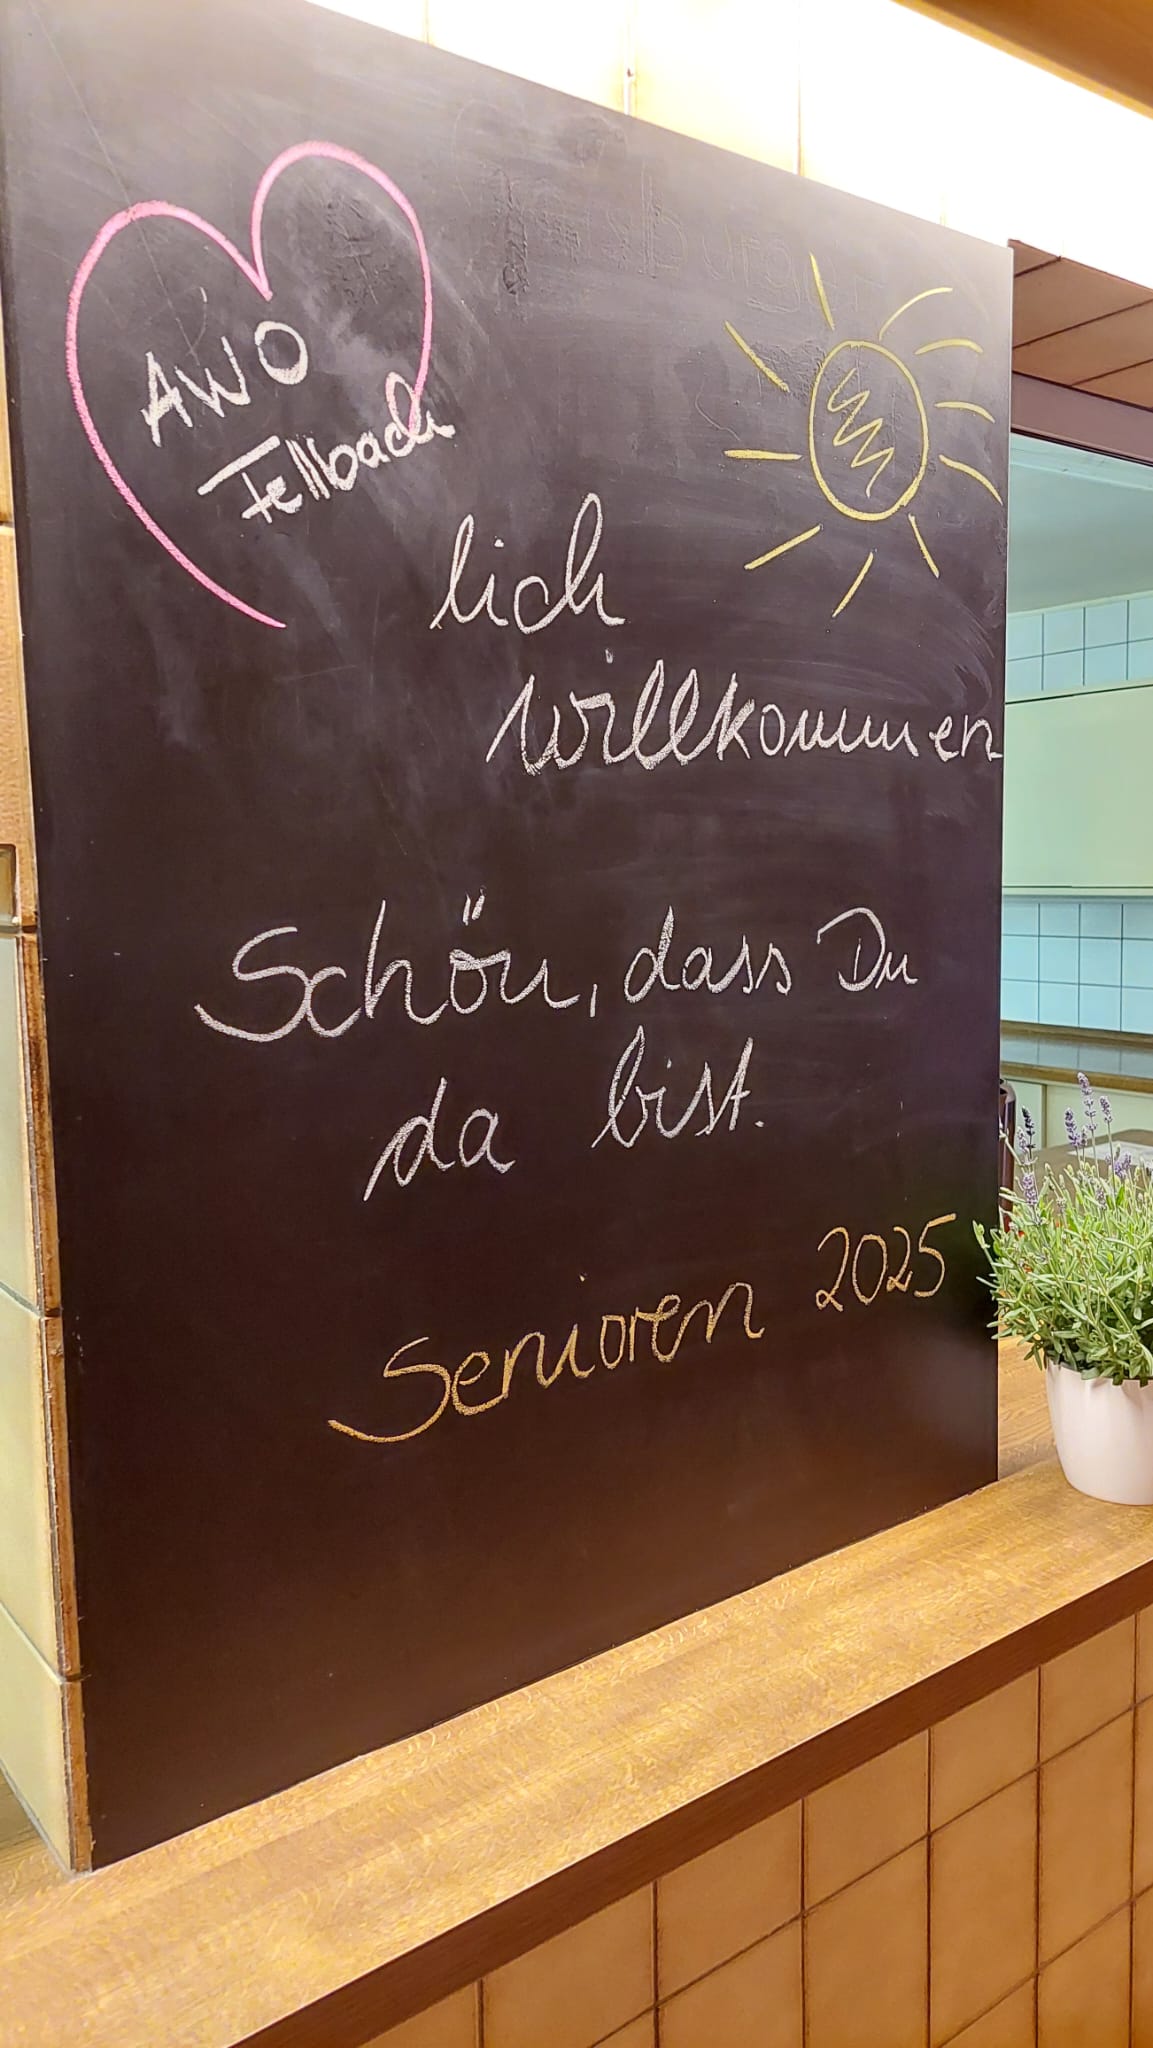 AWO
Fellbach
lich
willkommen
Schön, dass Du
da bist.
Senioren 2025